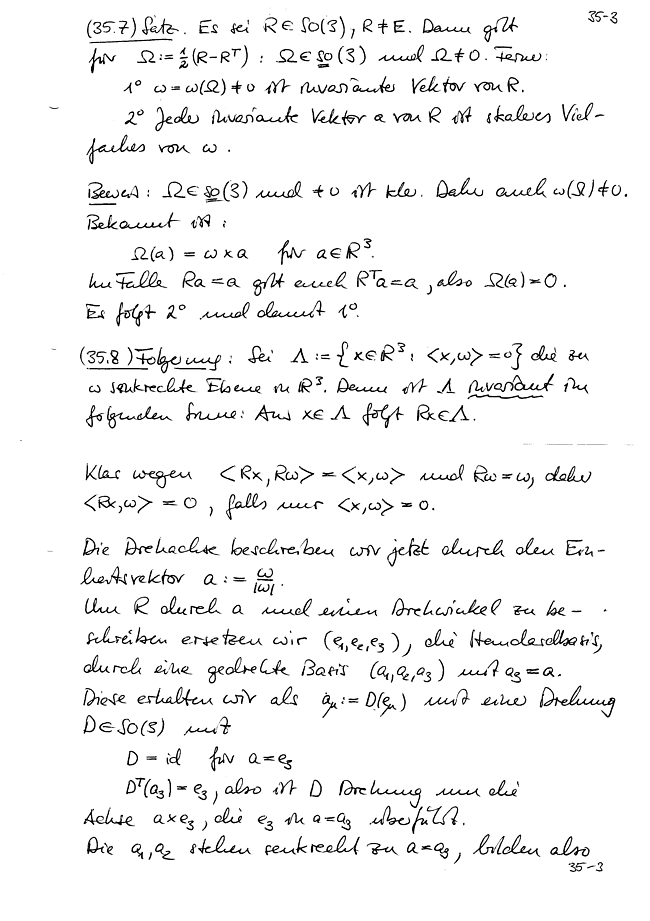 35-3
(35.7) Satz. Es sei R ∈ SO(3), R ≠ E. Dann gilt
für Ω := ½(R-Rᵀ) : Ω ∈ so(3) und Ω ≠ 0. Ferner:
1° ω = ω(Ω) ≠ 0 ist invarianter Vektor von R.
2° Jeder invariante Vektor a von R ist skalares Viel-
faches von ω.
Beweis: Ω ∈ so(3) und ≠ 0 ist klar. Daher auch ω(Ω) ≠ 0.
Bekannt ist:
Ω(a) = ω × a für a ∈ ℝ³.
Im Falle Ra = a gilt auch Rᵀa = a, also Ω(a) = 0.
Es folgt 2° und damit 1°.
(35.8) Folgerung: Sei Λ := {x ∈ ℝ³ : <x,ω> = 0} die zu
ω senkrechte Ebene in ℝ³. Dann ist Λ invariant im
folgenden Sinne: Aus x ∈ Λ folgt Rx ∈ Λ.
Klar wegen <Rx, Rω> = <x,ω> und Rω = ω, daher
<Rx,ω> = 0, falls nur <x,ω> = 0.
Die Drehachse beschreiben wir jetzt durch den Ein-
heitsvektor a := ω/|ω|.
Um R durch a und einen Drehwinkel zu be-
schreiben ersetzen wir (e₁,e₂,e₃), die Standardbasis,
durch eine gedrehte Basis (a₁,a₂,a₃) mit a₃ = a.
Diese erhalten wir als aμ := D(eμ) mit einer Drehung
D ∈ SO(3) mit
D = id für a = e₃
Dᵀ(a₃) = e₃, also ist D Drehung um die
Achse a × e₃, die e₃ in a = a₃ überführt.
Die a₁, a₂ stehen senkrecht zu a = a₃, bilden also
35-3